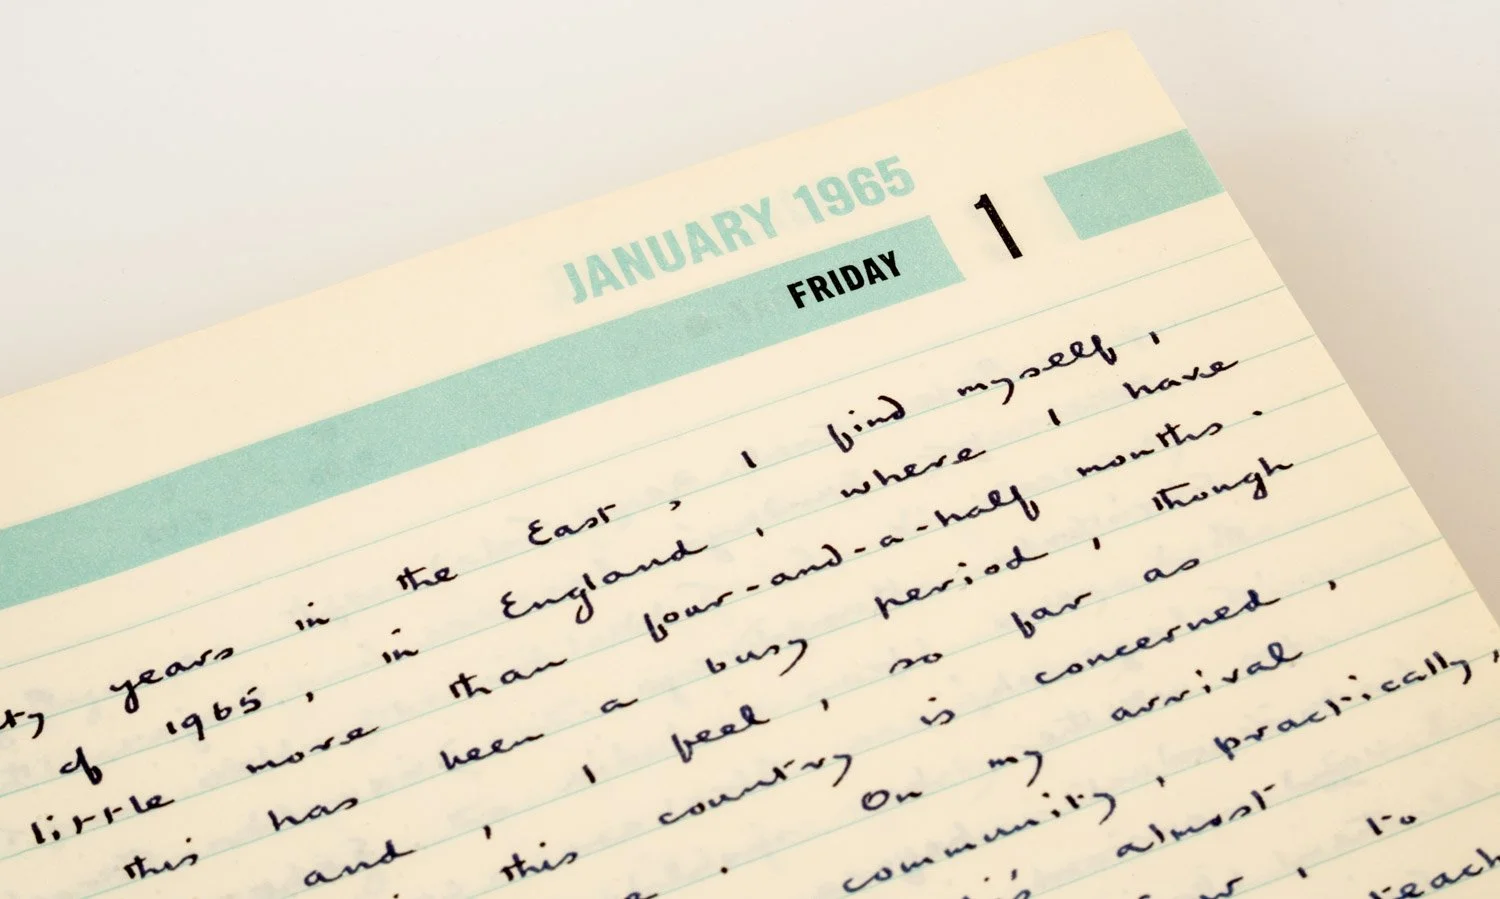 JANUARY 1965
FRIDAY 1
years in the East, I find myself,
of 1965, in England, where I have
little more than four-and-a-half months.
this has been a busy period, though
and, I feel, so far as
this country is concerned,
. On my arrival
community, practically,
almost
, to
teach